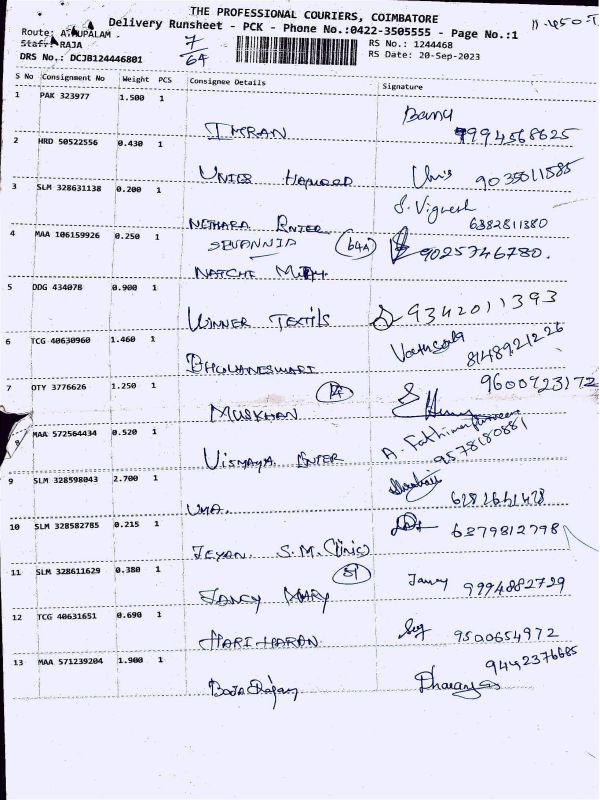 THE PROFESSIONAL COURIERS, COIMBATORE
Delivery Runsheet - PCK - Phone No.:0422-3505555 - Page No.:1
Route: A.NUPALAM .
Staff: RAJA
7/64
RS No.: 1244468
DRS No.: DCJB124446801
RS Date: 20-Sep-2023
S No Consignment No Weight PCS Consignee Details Signature
1 PAK 323977 1.500 1
IMRAN 9994568625
2 HRD 50522556 0.430 1
9035011585
3 SLM 328631138 0.200 1 S. Vignesh
NETHARA ENTER 6382811380
4 MAA 106159926 0.250 1 64A 9025746780.
5 DDG 434078 0.900 1
WINNER TEXTILS 9342011393
6 TCG 40630960 1.460 1
BHUVANESWARI 8148921226
7 OTY 3776626 1.250 1 9600923172
MUSKHAN
8 MAA 572564434 0.520 1 A. Fathima
VISMAYA ENTER 9578180881
9 SLM 328598043 2.700 1
UMA.
10 SLM 328582785 0.215 1 6379812798
JEYAN S.M. Clinic
11 SLM 328611629 0.380 1 Jancy 9994882729
JANCY MARY
12 TCG 40631651 0.690 1
HARI HARAN 9500654972
13 MAA 571239204 1.900 1 9442376685